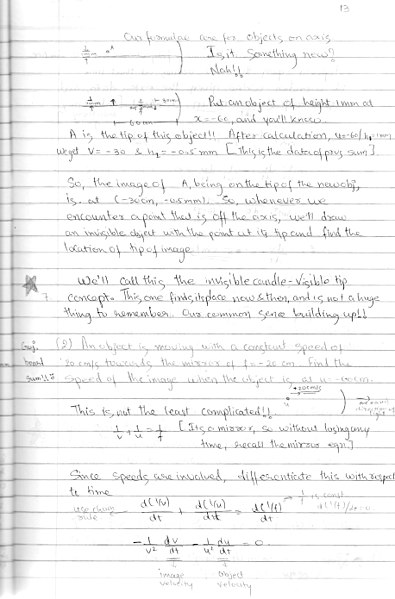 13
Our formulae are for objects on axis
Is it Something new?
Nah!!
Put an object of height 1mm at
60mm x = -60, and you'll know.
A is the tip of this object!! After calculation, u=-60/h₀=1mm
we get V = -30 & h₁ = -0.5mm [This is the data of prvs sum].
So, the image of A, being on the tip of the new obj,
is at (-30cm, -0.5mm). So, whenever we
encounter a point that is off the axis, we'll draw
an invisible object with the point at its tip and find the
location of tip of image.
We'll call this the invisible candle-visible tip
concept. This one finds its place now & then, and is not a huge
thing to remember. Our common sense building up!!
(2) An object is moving with a constant speed of
board 20 cm/s towards the mirror of f = -20 cm. Find the
sum!! Speed of the image when the object is at
This is not the least complicated!!
1/v + 1/u = 1/f [Its a mirror, so without losing any
time, recall the mirror eqn.]
Since speeds are involved, differentiate this with respect
to time
use chain rule d(1/v)/dt + d(1/u)/dt = d(1/f)/dt
-1/v² dv/dt - 1/u² du/dt = 0
image velocity object velocity